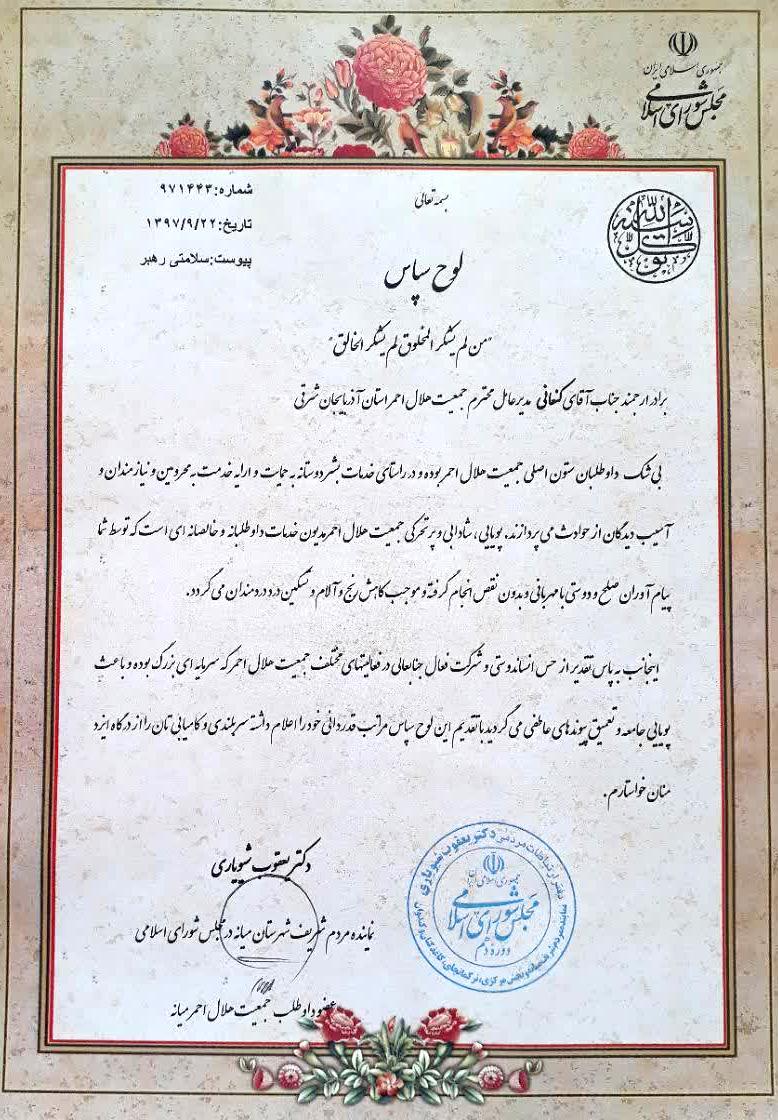 جمهوری اسلامی ایران
مجلس شورای اسلامی
شماره:۹۷۱۴۴۳
تاریخ:۱۳۹۷/۹/۲۲
پیوست:سلامتی رهبر
بسمه تعالی
لوح سپاس
"من لم یشکر المخلوق لم یشکر الخالق"
برادر ارجمند جناب آقای کنعانی مدیرعامل محترم جمعیت هلال احمر استان آذربایجان شرقی
بی شک داوطلبان ستون اصلی جمعیت هلال احمر بوده و در راستای خدمات بشردوستانه به حمایت و ارایه خدمت به محرومین و نیازمندان و
آسیب دیدگان از حوادث می پردازند. پویایی، شادابی و پرتحرکی جمعیت هلال احمر مدیون خدمات داوطلبانه و خالصانه ای است که توسط شما
پیام آوران صلح و دوستی با مهربانی و بدون نقص انجام گرفته و موجب کاهش رنج و آلام و تسکین درد دردمندان می گردد.
اینجانب به پاس تقدیر از حس انساندوستی و شرکت فعال جنابعالی در فعالیتهای مختلف جمعیت هلال احمر که سرمایه ای بزرگ بوده و باعث
پویایی جامعه و تعمیق پیوندهای عاطفی می گردید با تقدیم این لوح سپاس مراتب قدردانی خود را اعلام داشته سربلندی و کامیابی تان را از درگاه ایزد
منان خواستارم.
دکتر یعقوب شیویاری
نماینده مردم شریف شهرستان میانه در مجلس شورای اسلامی
عضو داوطلب جمعیت هلال احمر میانه
دفتر ارتباطات مردمی دکتر یعقوب شیویاری
جمهوری اسلامی ایران
مجلس شورای اسلامی
دوره دهم